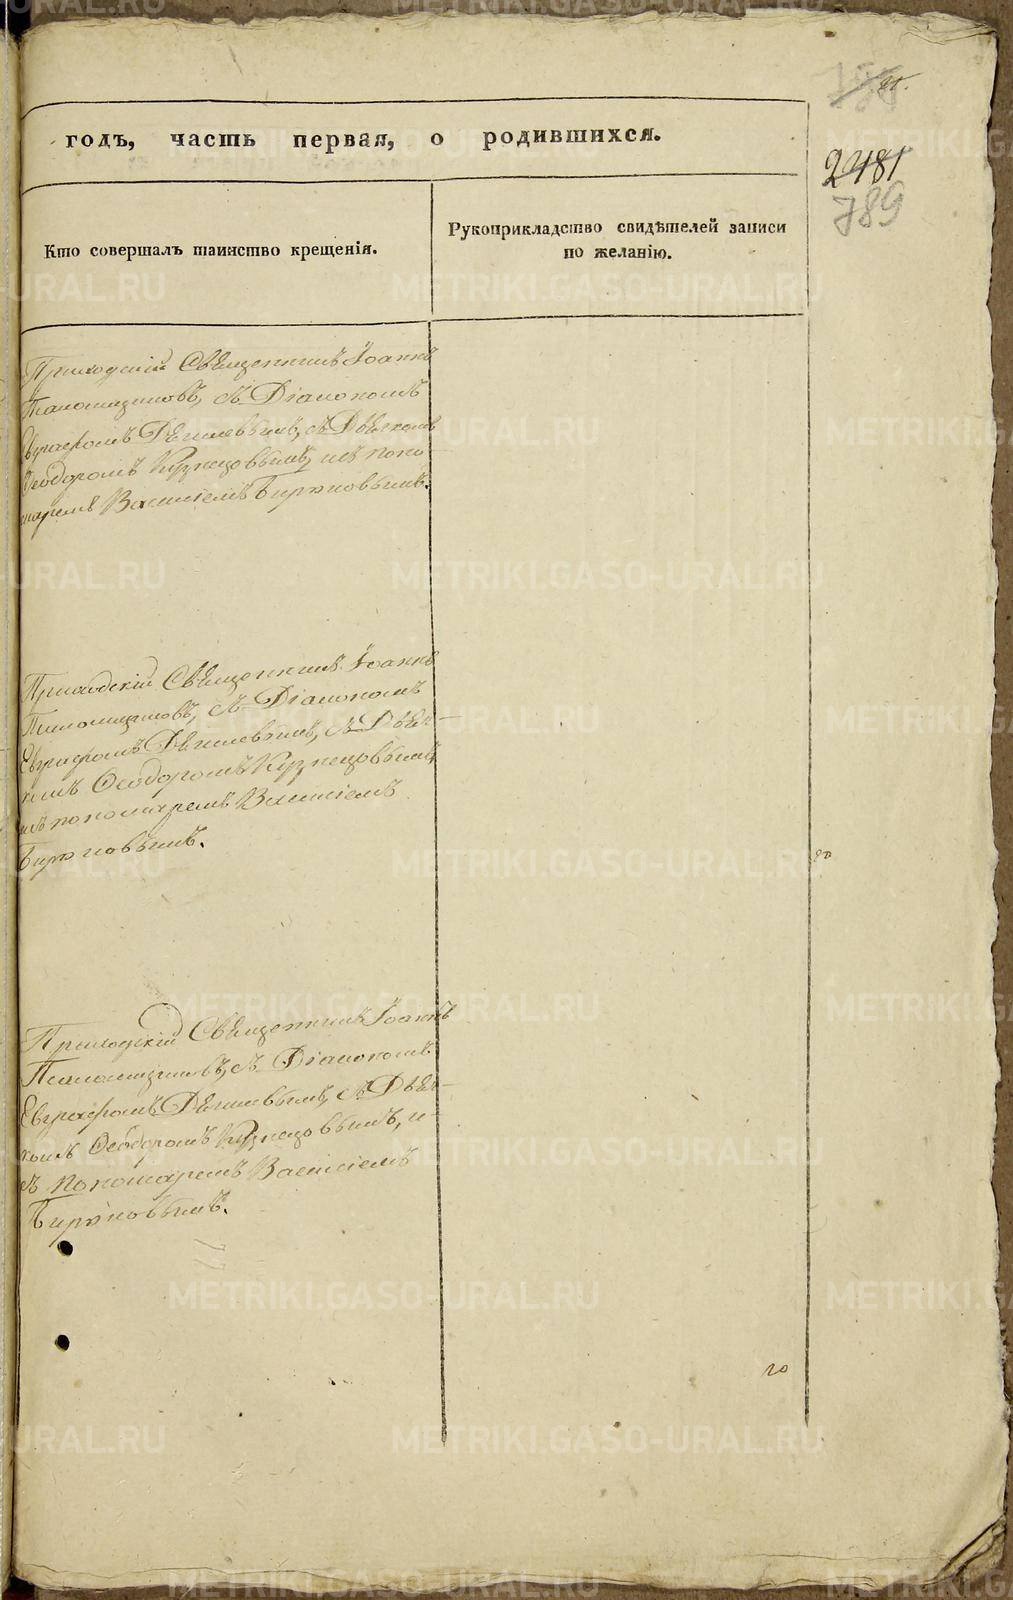 21.
2481
789
годъ, часть первая, о родившихся.
Кто совершалъ таинство крещенія.
Рукоприкладство свидѣтелей записи
по желанію.
Приходскій Священникъ Іоаннъ
съ Діакономъ
Евграфомъ съ Дьячкомъ
Ѳеодоромъ Кузнецовымъ, и съ поно-
маремъ Василіемъ Бирюковымъ.
Приходскій Священникъ Іоаннъ
съ Діакономъ
Евграфомъ съ Дьяч-
комъ Ѳеодоромъ Кузнецовымъ,
и съ пономаремъ Василіемъ
Бирюковымъ.
Приходскій Священникъ Іоаннъ
съ Діакономъ
Евграфомъ съ Дьяч-
комъ Ѳеодоромъ Кузнецовымъ, и
съ пономаремъ Василіемъ
Бирюковымъ.
METRIKI.GASO-URAL.RU